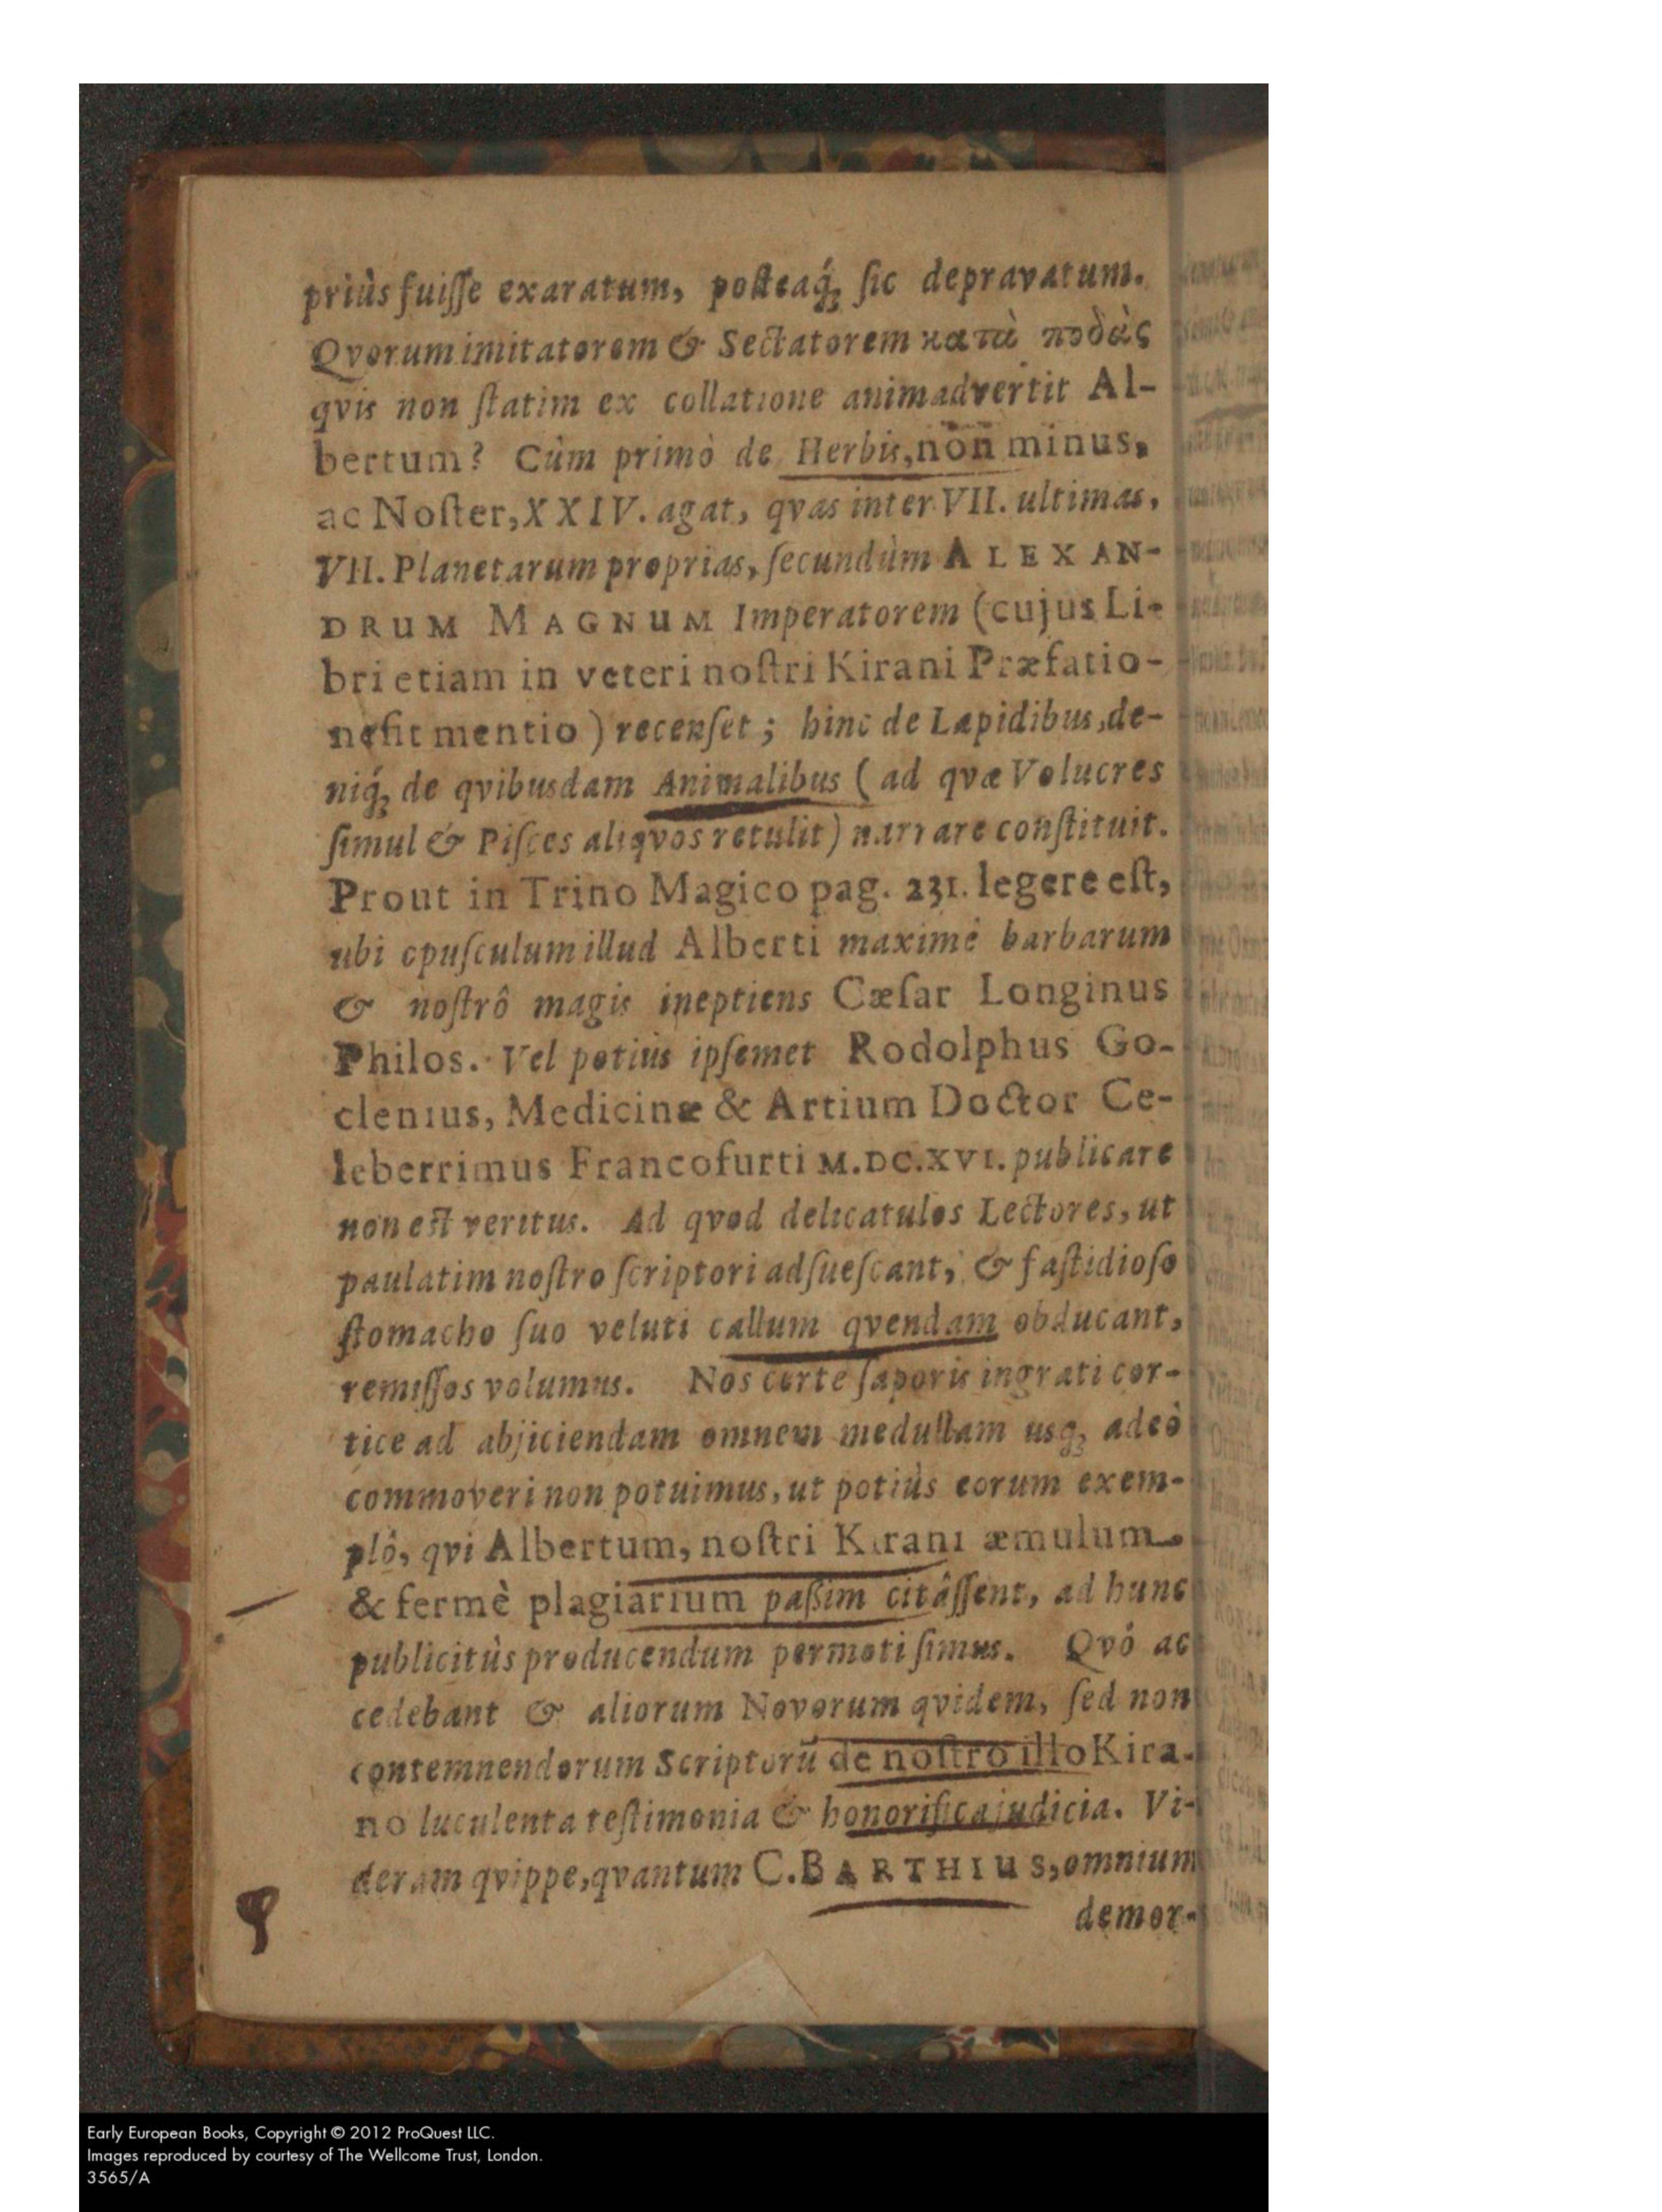 priùs fuiſſe exaratum, poſteaq́; ſic depravatum.
Qvorum imitatorem & Sectatorem κατὰ πόδὰς
qvis non ſtatim ex collatione animadvertit Al-
bertum? Cùm primò de Herbis, non minus,
ac Noſter, XXIV. agat, qvas inter VII. ultimas,
VII. Planetarum proprias, ſecundùm ALEXAN-
DRUM MAGNUM Imperatorem (cujus Li-
bri etiam in veteri noſtri Kirani Præfatio-
ne fit mentio) recenſet; hinc de Lapidibus, de-
niq́; de qvibusdam Animalibus (ad qvæ Volucres
ſimul & Piſces aliqvos retulit) narrare conſtituit.
Prout in Trino Magico pag. 231. legere eſt,
ubi opuſculum illud Alberti maximè barbarum
& noſtrô magis ineptiens Cæſar Longinus
Philos. Vel potiùs ipſemet Rodolphus Go-
clenius, Medicinæ & Artium Doctor Ce-
leberrimus Francofurti M.DC.XVI. publicare
non eſt veritus. Ad qvod delicatulos Lectores, ut
paulatim noſtro ſcriptori adſueſcant, & faſtidioſo
ſtomacho ſuo veluti callum qvendam obducant,
remiſſos volumus. Nos certe ſaporis ingrati cor-
tice ad abjiciendam omnem medullam usq; adeò
commoveri non potuimus, ut potiùs eorum exem-
plô, qvi Albertum, noſtri Kirani æmulum
& fermè plagiarium paßim citâſſent, ad hunc
publicitùs producendum permoti ſimus. Qvô ac
cedebant & aliorum Novorum qvidem, ſed non
contemnendorum Scriptorū de noſtro illo Kira-
no luculenta teſtimonia & honorifica judicia. Vi-
deram qvippe, qvantum C. BARTHIUS, omnium
demor-
Early European Books, Copyright © 2012 ProQuest LLC.
Images reproduced by courtesy of The Wellcome Trust, London.
3565/A